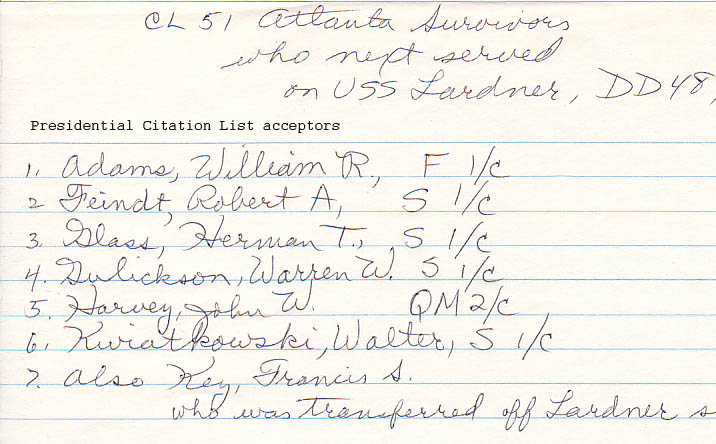 CL 51 Atlanta Survivors
who next served
on USS Lardner, DD48
Presidential Citation List acceptors
1. Adams, William R., F 1/c
2 Feindt, Robert A, S 1/c
3. Glass, Herman T., S 1/c
4. Gulickson, Warren W. S 1/c
5. Harvey, John W. QM 2/c
6. Kwiatkowski, Walter, S 1/c
7. Also Key, Francis S.
who was transferred off Lardner s